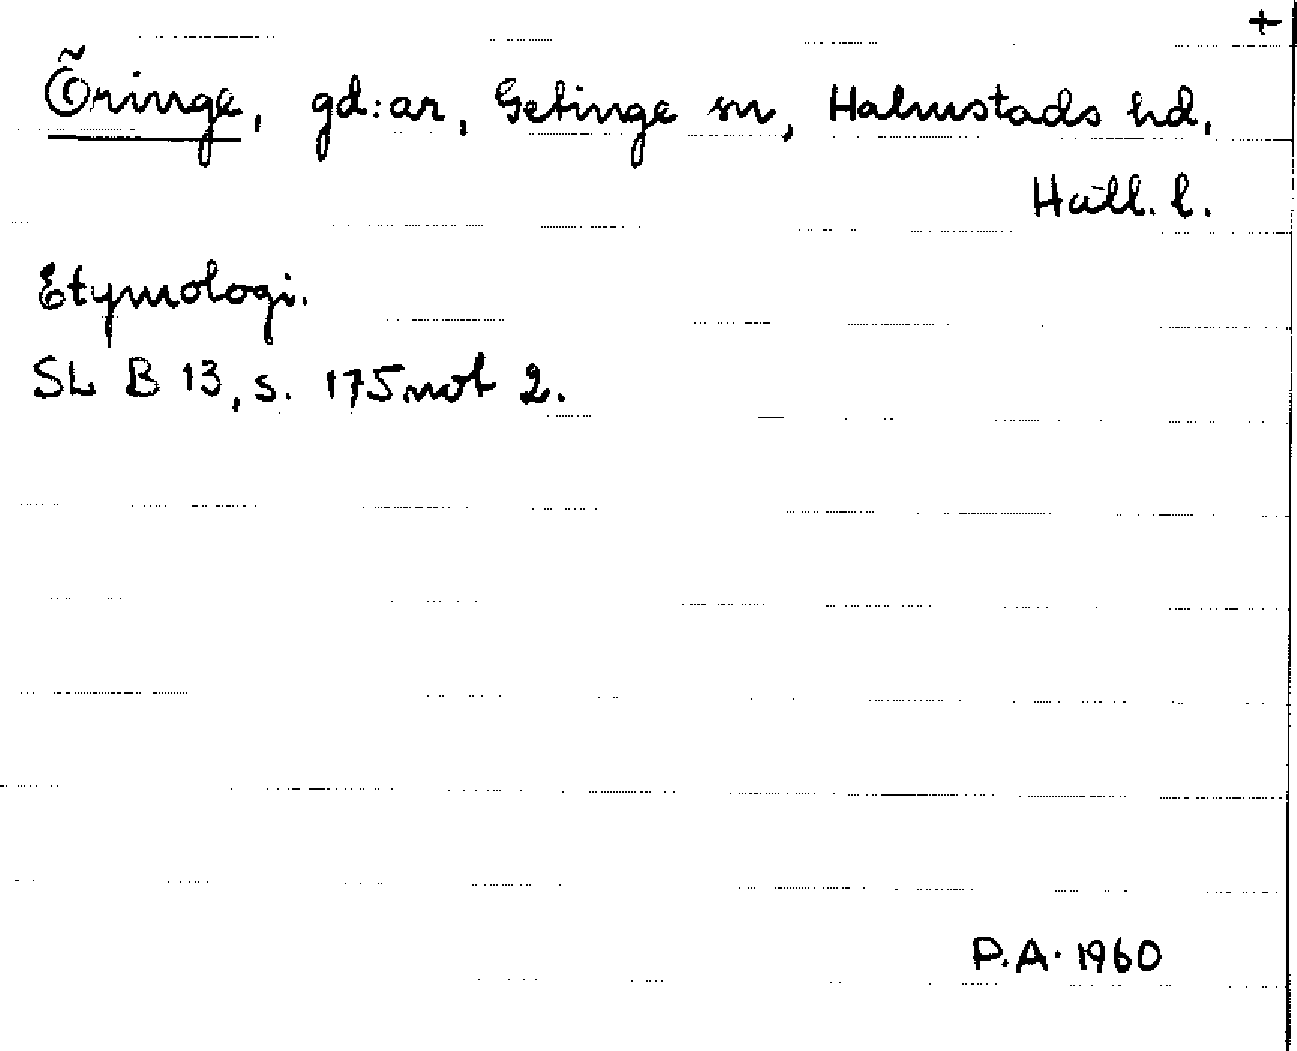 +
Öringe, gd:ar, Getinge sn, Halmstads hd,
Hall. l.
Etymologi.
SL B 13, s. 175 not 2.
P.A. 1960